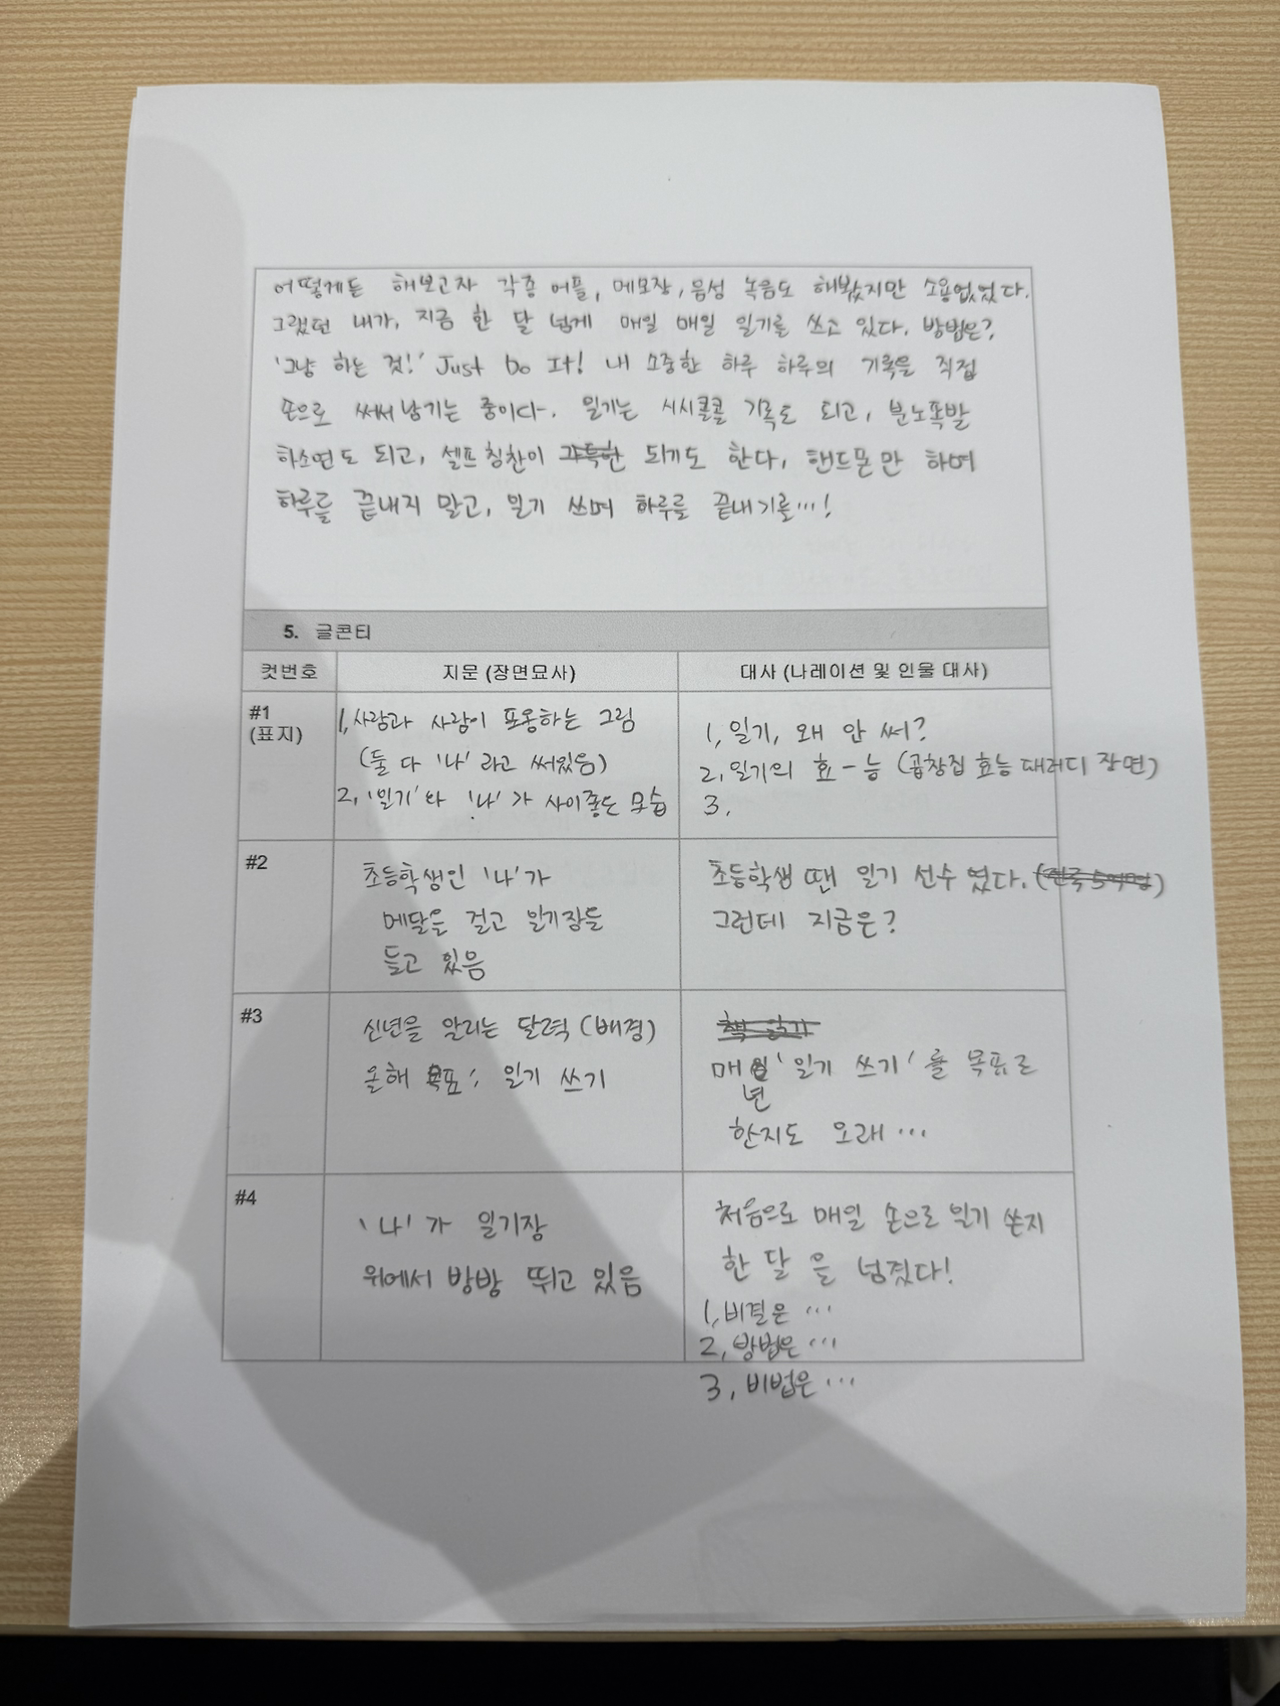 어떻게든 해보고자 각종 어플, 메모장, 음성 녹음도 해봤지만 소용없었다.
그랬던 내가, 지금 한 달 넘게 매일 매일 일기를 쓰고 있다. 방법은?
'그냥 하는 것!' Just Do It! 내 소중한 하루 하루의 기록을 직접
손으로 써서 남기는 중이다. 일기는 시시콜콜 기록도 되고, 분노폭발
하소연도 되고, 셀프칭찬이 가득한 되기도 한다. 핸드폰만 하며
하루를 끝내지 말고, 일기 쓰며 하루를 끝내기를…!
5. 글콘티
컷번호 지문 (장면묘사) 대사 (나레이션 및 인물 대사)
#1
(표지)
1, 사람과 사람이 포옹하는 그림
(둘 다 '나' 라고 써있음)
2, '일기'와 '나'가 사이좋은 모습
1, 일기, 왜 안 써?
2, 일기의 효-능 (곱창집 효능 패러디 장면)
3,
#2
초등학생인 '나'가
메달을 걸고 일기장을
들고 있음
초등학생 땐 일기 선수였다.
그런데 지금은?
#3
신년을 알리는 달력 (배경)
올해 목표: 일기 쓰기
책 읽기
매년 '일기 쓰기'를 목표로
한지도 오래…
#4
'나'가 일기장
위에서 방방 뛰고 있음
처음으로 매일 손으로 일기 쓴지
한 달을 넘겼다!
1, 비결은 …
2, 방법은 …
3, 비법은 …